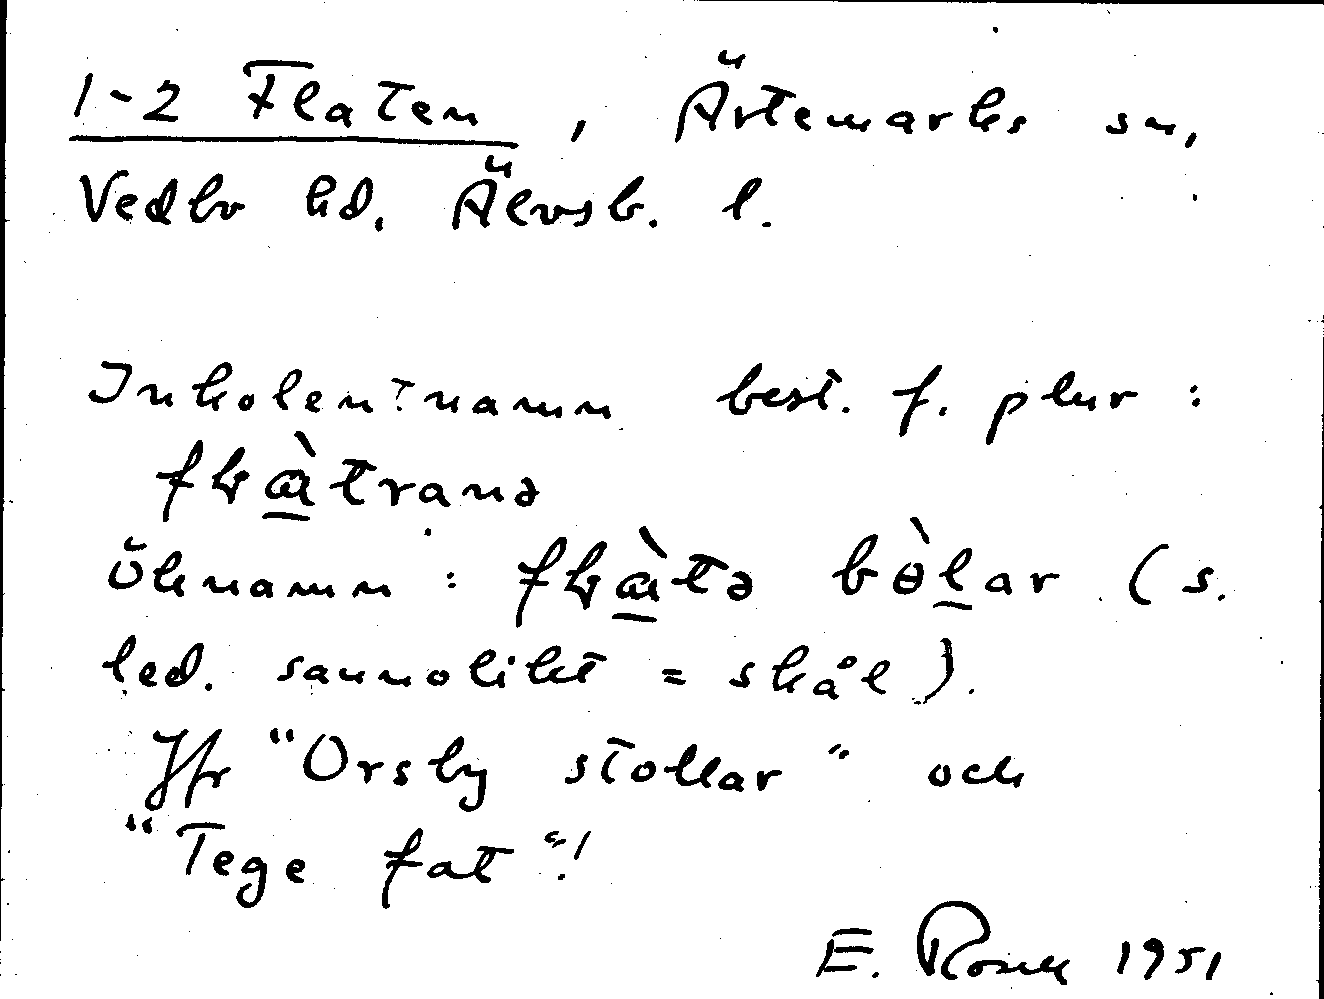 1-2 Flaten, Ärtemarks sn,
Vedbo hd. Älvsb. l.
Inkolentnamn best. f. plur :
flɑ̀tranə
Öknamn : flɑ̀tə bɵ̀lar (s.
led. sannolikt = skål).
Jfr "Orsby stollar" och
"Tege fat"!
E. 1951